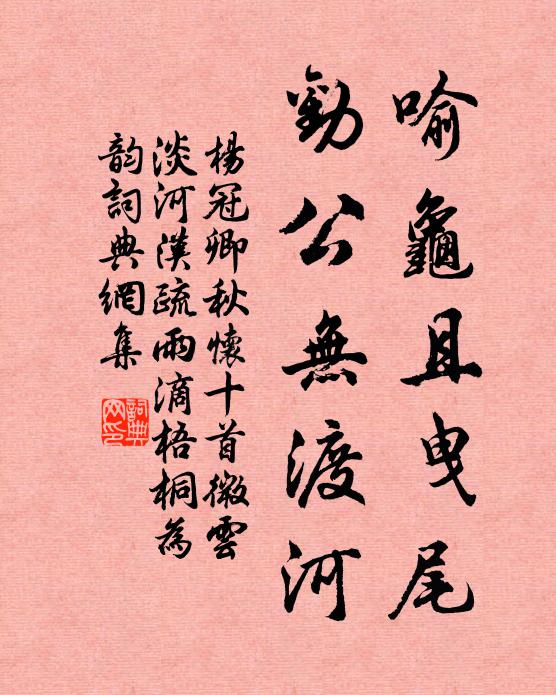 喻龜且曳尾
勸公無渡河
楊冠卿秋懷十首微雲
淡河漢疏雨滴梧桐為
韵詞典網集
詞典网印